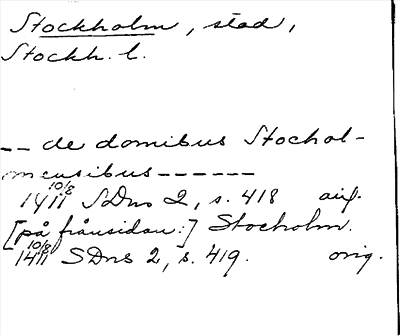 Stockholm, stad,
Stockh. l.
-- de domibus Stochol-
mensibus ------
10/8 1411 SDns 2, s. 418 orig.
[på frånsidan:] Stocholm.
10/8 1411 SDns 2, s. 419. orig.